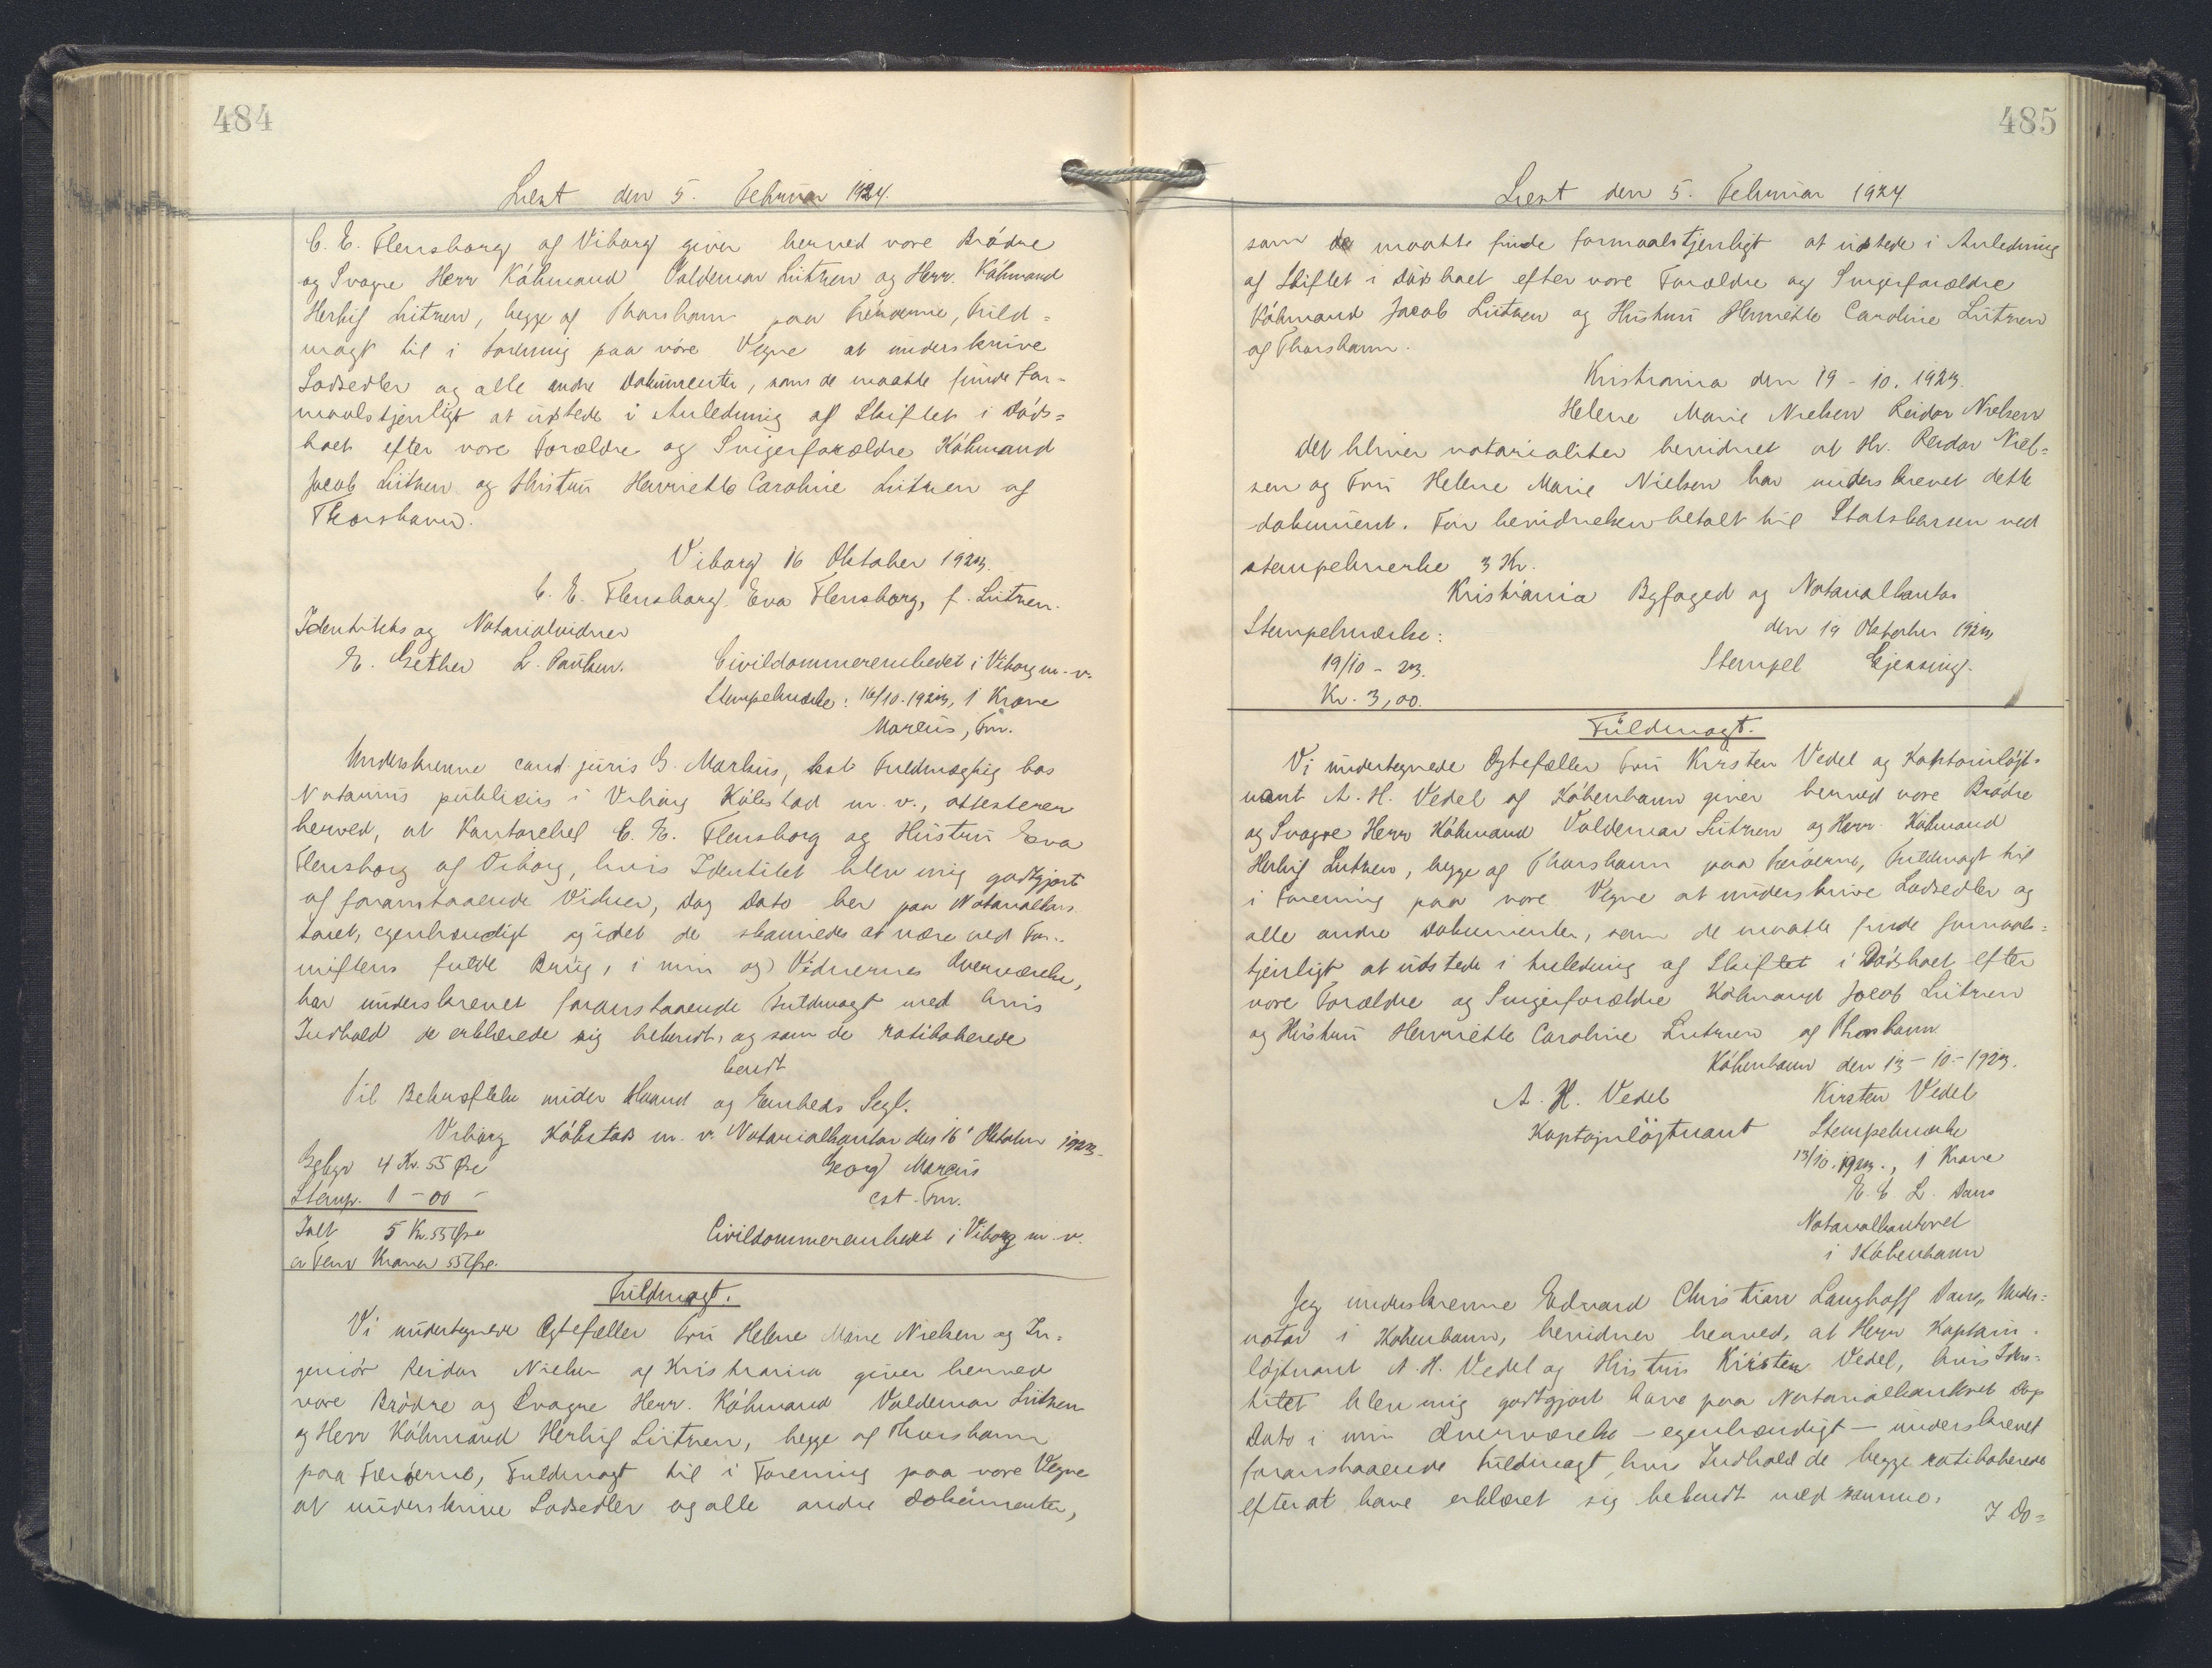 484
Læst den 5. Februar 1924.
C. E. Flensborg af Viborg giver herved vore Brödre
og Svogre Herr Köbmand Valdemar Lützen og Herr. Köbmand
Herluf Lützen, begge af Thorshavn paa Færöerne, Fuld=
magt til i Forening paa vore Vegne at underskrive
Lodsedler og alle andre Dokumenter, som de maatte finde for-
maalstjenligt at udstede i Anledning af Skiftet i Döds=
boet efter vore Forældre og Svigerforældre Köbmand
Jacob Lützen og Hustru Henriette Caroline Lützen af
Thorshavn.
Viborg 16 Oktober 1923.
C. E. Flensborg. Eva Flensborg, f. Lützen.
Identitets og Notarialvidner
E. Gether L. Paulsen. Civildommerembedet i Viborg m. v.
Stempelmærke: 16/10.1923, 1 Krone
Marcus, Fm.
Underskrevne cand. juris G. Markus, kst Fuldmægtig hos
Notarius publicus i Viborg Köbstad m. v., attesterer
herved, at Kontorchef C. E. Flensborg og Hustru Eva
Flensborg af Viborg, hvis Identitet blev mig godtgjort
af foranstaaende Vidner, Dag Dato her paa Notarialkon
toret, egenhændigt og idet de skønnedes at være ved For-
nuftens fulde Brug, i min og Vidnernes Overværelse,
har underskrevet foranstaaende Fuldmagt med hvis
Indhold de erklærede sig bekendt, og som de ratihaberede
bendt
Til Bekræftelse under Haand og Embeds Segl.
Viborg Köbstads m. v. Notarialkontor den 16' Oktober 1923.
Gebyr 4 Kr. 55 Øre Georg Marcus
Stemp. 1 - 00 - cst. Fm.
Ialt 5 Kr. 55 Øre Civildommerembedet i Viborg m. v.
er Fem Kroner 55 Øre.
Fuldmagt.
Vi undertegnede Ægtefæller Fru Helene Marie Nielsen og In-
geniör Reidar Nielsen af Kristiania giver herved
vore Brödre og Svogre Herr. Köbmand Valdemar Lützen
og Herr Köbmand Herluf Lützen, begge af Thorshavn
paa Færöerne, Fuldmagt til i Forening paa vore Vegne
at underskrive Lodsedler og alle andre Dokumenter,
485
Læst den 5. Februar 1924
som de maatte finde formaalstjenligt at udstede i Anledning
af Skiftet i Dödsboet efter vore Forældre og Svigerforældre
Köbmand Jacob Lützen og Hustru Henriette Caroline Lützen
af Thorshavn.
Kristiania den 19 - 10. 1923.
Helene Marie Nielsen Reidar Nielsen
Det bliver notarialiter bevidnet at Hr. Reidar Niel=
sen og Fru Helene Marie Nielsen har underskrevet dette
dokument. For bevidnelsen betalt til Statskassen ved
stempelmerke 3 Kr.
Kristiania Byfoged og Notarialkontor
Stempelmærke: den 19 Oktober 1923
19/10 - 23. Stempel Gjessing.
Kr. 3,00.
Fuldmagt.
Vi undertegnede Ægtefæller Fru Kirsten Vedel og Kaptainløjt-
nant A. H. Vedel af Köbenhavn giver herved vore Brödre
og Svogre Herr Köbmand Valdemar Lützen og Herr. Köbmand
Herluf Lützen, begge af Thorshavn paa Færöerne, Fuldmagt til
i Forening paa vore Vegne at underskrive Lodsedler og
alle andre Dokumenter, som de maatte finde formaals=
tjenligt at udstede i Anledning af Skiftet i Dödsboet efter
vore Forældre og Svigerforældre Köbmand Jacob Lützen
og Hustru Henriette Caroline Lützen af Thorshavn
Köbenhavn den 13 - 10 - 1923.
A. H. Vedel Kirsten Vedel
Kaptajnlöjtnant Stempelmærke
13/10. 1923., 1 Krone
E. C. L. Dons
Notarialkontoret
i Köbenhavn
Jeg underskrevne Edvard Christian Langhoff Dons, Under=
notar i Köbenhavn, bevidner herved, at Herr Kaptain-
löjtnant A. H. Vedel og Hustru Kirsten Vedel, hvis Iden=
titet blev mig godtgjort have paa Notarialkontoret Dags
Dato i min Overværelse - egenhændigt - underskrevet
foranstaaende Fuldmagt, hvis Indhold de begge ratihaberede
efter at have erklæret sig bekendt med samme.
I Do=